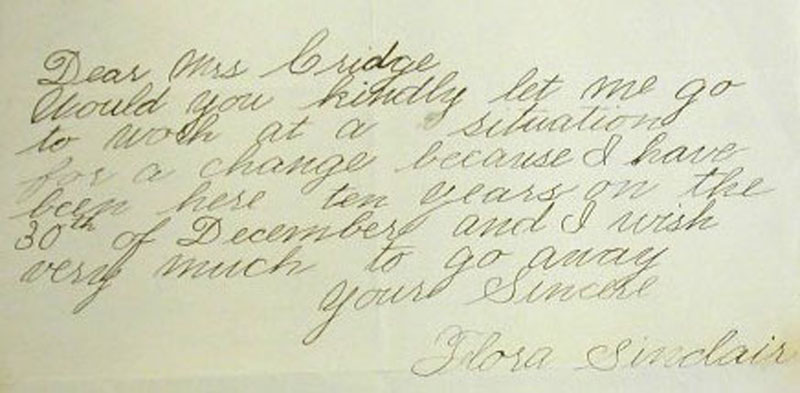 Dear Mrs Cridge
Would you kindly let me go
to work at a situation
for a change because I have
been here ten years on the
30th of December and I wish
very much to go away
Your Sincere
Flora Sinclair